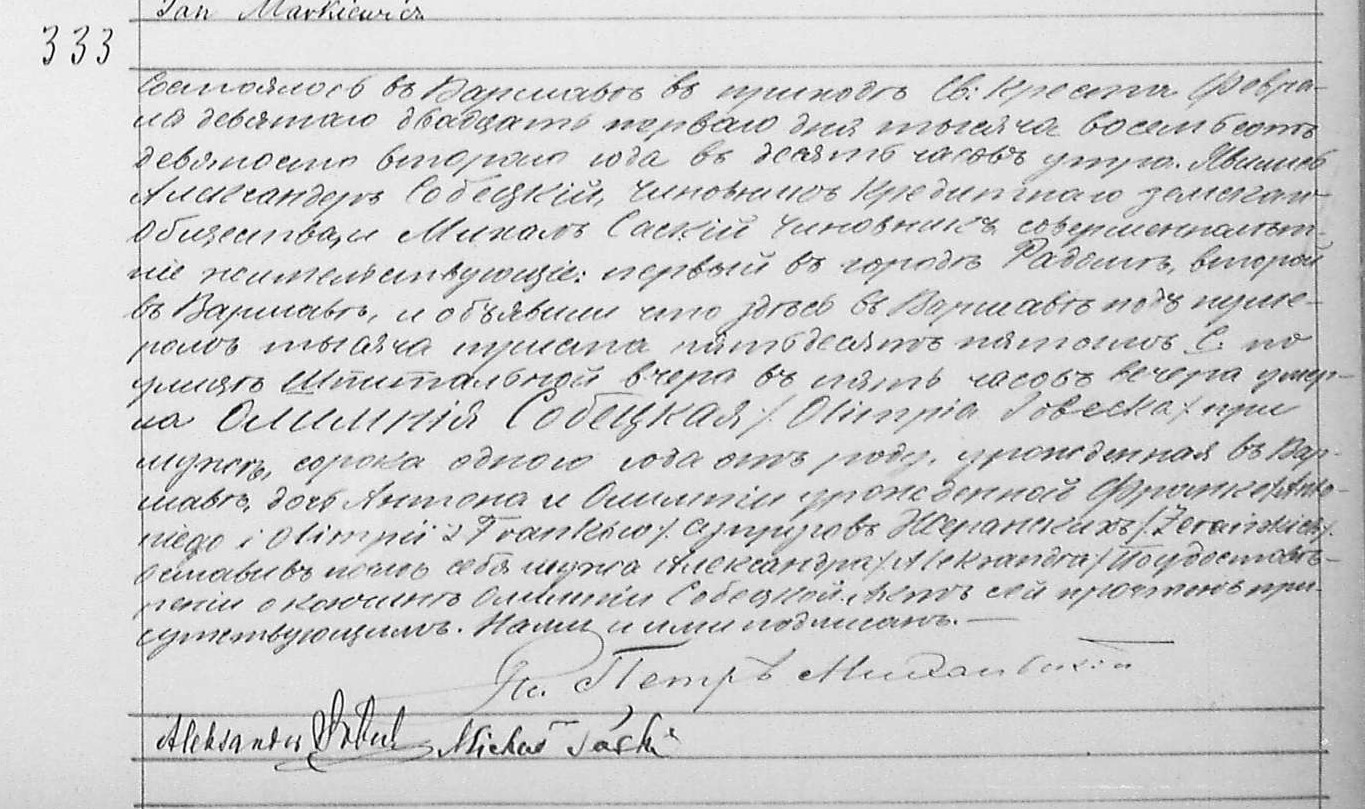 Jan Markiewicz
333
Состоялось въ Варшавѣ въ приходѣ Св: Креста Февра-
ля девятаго двадцать перваго дня тысяча восемьсотъ
девяносто второго года въ десять часовъ утра. Явились
Александеръ Собецкій, чиновникъ Кредитнаго земскаго
Общества, и Михалъ Саскій чиновникъ, совершеннолѣт-
ніе жительствующіе: первый въ городѣ Радомѣ, второй
въ Варшавѣ, и объявили что здѣсь въ Варшавѣ подъ нуме-
ромъ тысяча триста пятьдесятъ пятомъ С. по
улицѣ Шпитальной вчера въ пять часовъ вечера умер-
ла Олимпія Собецкая /Olimpia Sobecka/ при
мужѣ, сорока одного года отъ роду, урожденная въ Вар-
шавѣ, дочь Антона и Олимпіи урожденной Франке /Anto-
niego i Olimpii z Franków/ супруговъ Жеранскихъ /Żerańskich/.
Оставивъ послѣ себя мужа Александра /Aleksandra/ По удостовѣ-
реніи о кончинѣ Олимпіи Собецкой. Актъ сей прочтенъ при-
сутствующимъ. Нами и ими подписанъ. —
Кс. Петръ
Aleksander Sobecki Michał Saski